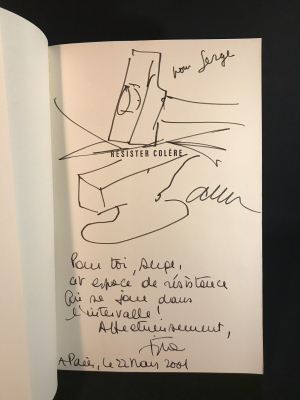 pour Serge
RÉSISTER COLÈRE
Pour toi, Serge,
cet espace de résistance
Qui se joue dans
l'intervalle !
Affectueusement,
A Paris, le 22 Mars 2001